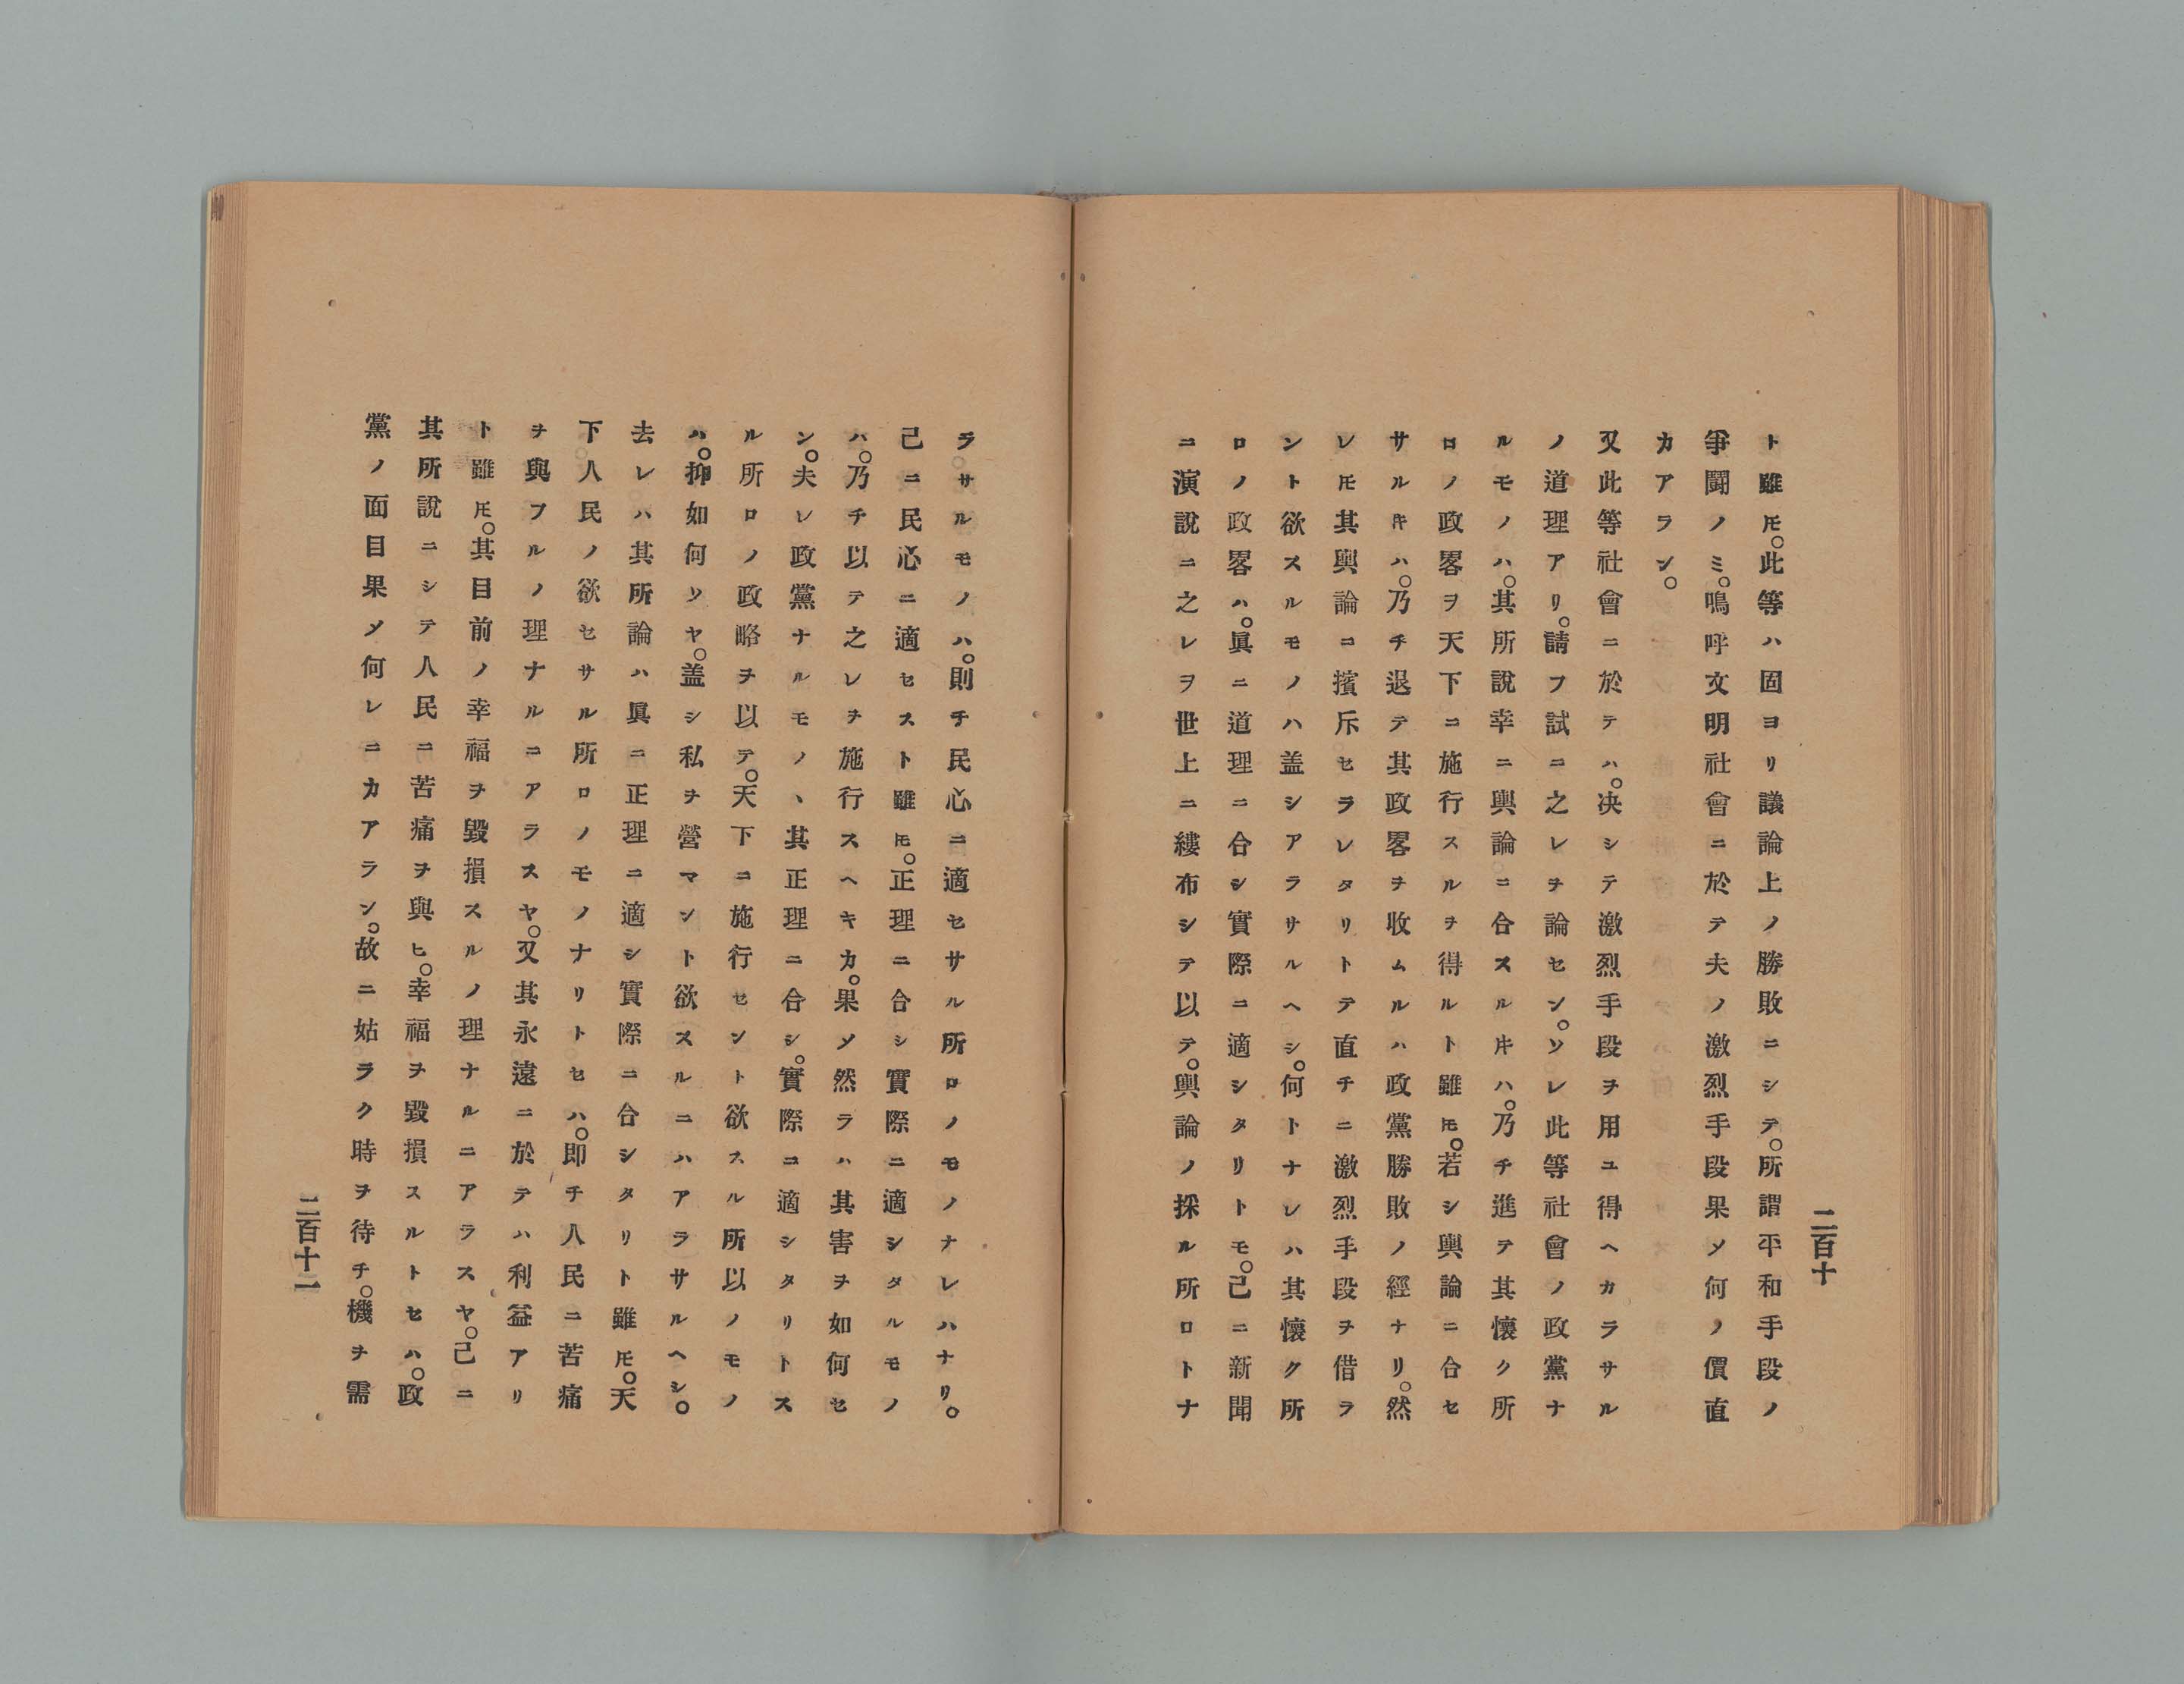 二百十
ト雖𪜈。此等ハ固ヨリ議論上ノ勝敗ニシテ。所謂平和手段ノ
爭鬪ノミ。嗚呼文明社會ニ於テ夫ノ激烈手段果〆何ノ價直
カアラン。
又此等社會ニ於テハ。决シテ激烈手段ヲ用ユ得ヘカラサル
ノ道理アリ。請フ試ニ之レヲ論セン。ソレ此等社會ノ政黨ナ
ルモノハ。其所説幸ニ輿論ニ合スル𪜈ハ。乃チ進テ其懐ク所
ロノ政畧ヲ天下ニ施行スルヲ得ルト雖𪜈。若シ輿論ニ合セ
サルキハ。乃チ退テ其政畧ヲ收ムルハ政黨勝敗ノ經ナリ。然
レ𪜈其輿論ニ擯斥セラレタリトテ直チニ激烈手段ヲ借ラ
ント欲スルモノハ盖シアラサルヘシ。何トナレハ其懐ク所
ロノ政畧ハ。眞ニ道理ニ合シ實際ニ適シタリトモ。己ニ新聞
ニ演説ニ之レヲ世上ニ縷布シテ以テ。輿論ノ採ル所ロトナ
ラサルモノハ。則チ民心ニ適セサル所ロノモノナレハナリ。
己ニ民心ニ適セスト雖𪜈。正理ニ合シ實際ニ適シタルモノ
ハ。乃チ以テ之レヲ施行スヘキカ。果〆然ラハ其害ヲ如何セ
ン。夫レ政黨ナルモノヽ其正理ニ合シ。實際ニ適シタリトス
ル所ロノ政略ヲ以テ。天下ニ施行セント欲スル所以ノモノ
ハ。抑如何ソヤ。盖シ私ヲ營マント欲スルニハアラサルヘシ。
去レハ其所論ハ眞ニ正理ニ適シ實際ニ合シタリト雖𪜈。天
下人民ノ欲セサル所ロノモノナリトセハ。即チ人民ニ苦痛
ヲ與フルノ理ナルニアラスヤ。又其永遠ニ於テハ利益アリ
ト雖𪜈。其目前ノ幸福ヲ毀損スルノ理ナルニアラスヤ。己ニ
其所説ニシテ人民ニ苦痛ヲ與ヒ。幸福ヲ毀損スルトセハ。政
黨ノ面目果〆何レニカアラン。故ニ姑ラク時ヲ待チ。機ヲ需
二百十一